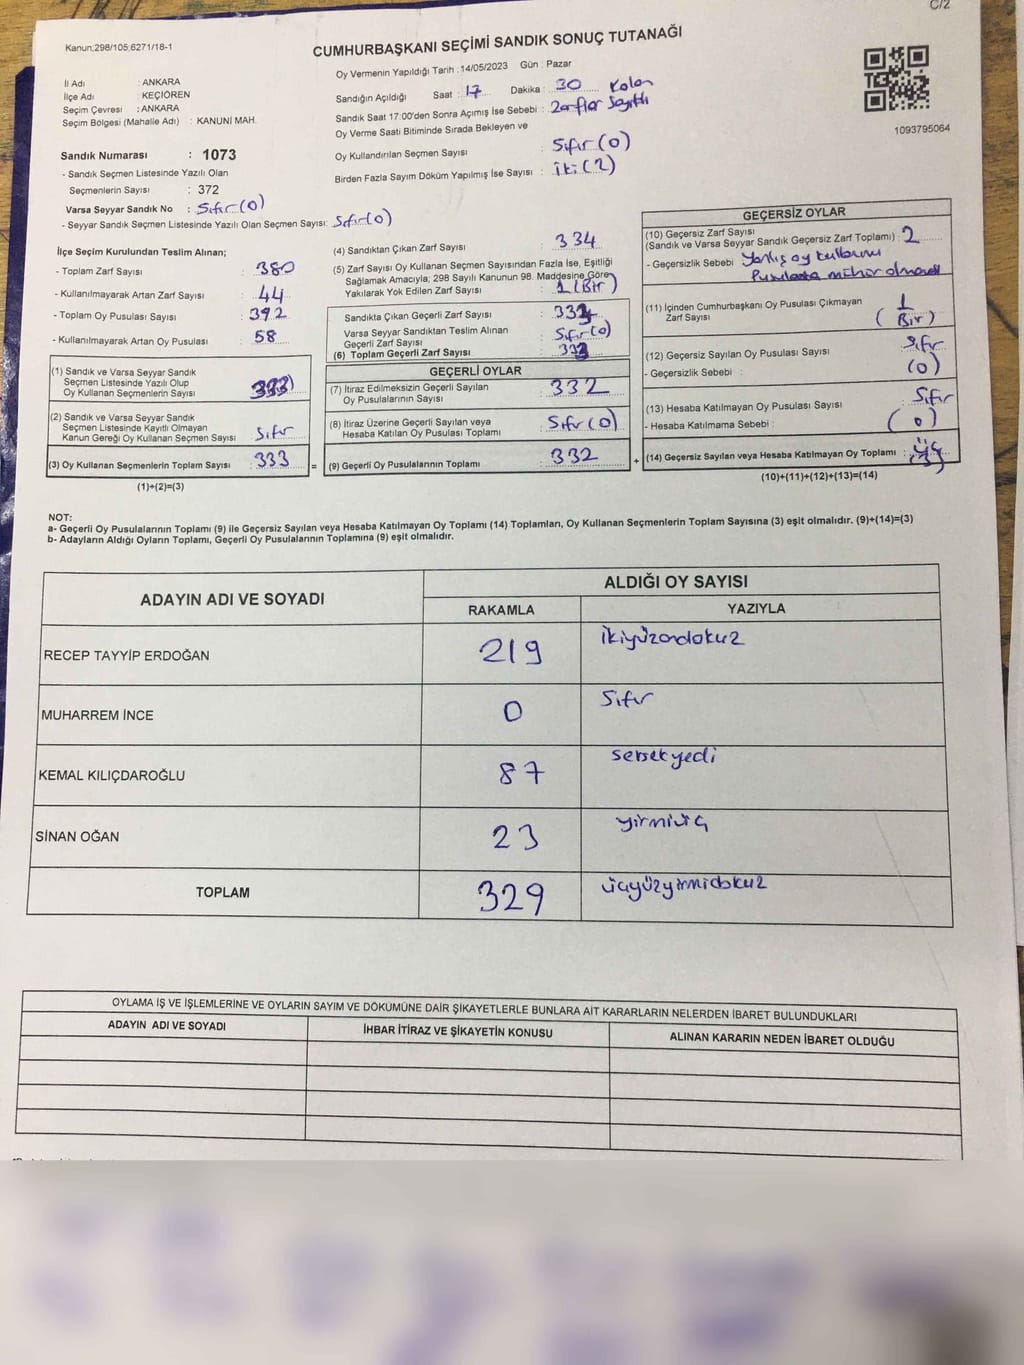 C/2
Kanun:298/105;6271/18-1
CUMHURBAŞKANI SEÇİMİ SANDIK SONUÇ TUTANAĞI
Oy Vermenin Yapıldığı Tarih :14/05/2023 Gün : Pazar
İl Adı : ANKARA
İlçe Adı : KEÇİÖREN
Seçim Çevresi : ANKARA
Seçim Bölgesi (Mahalle Adı) : KANUNİ MAH.
Sandığın Açıldığı Saat : 17 Dakika : 30 Kalan
Sandık Saat 17:00'den Sonra Açımış İse Sebebi : Zarflar Sayıldı
Oy Verme Saati Bitiminde Sırada Bekleyen ve
Oy Kullandırılan Seçmen Sayısı : Sıfır (0)
Birden Fazla Sayım Döküm Yapılmış İse Sayısı : İki (2)
1093795064
Sandık Numarası : 1073
- Sandık Seçmen Listesinde Yazılı Olan
Seçmenlerin Sayısı : 372
Varsa Seyyar Sandık No : Sıfır (0)
- Seyyar Sandık Seçmen Listesinde Yazılı Olan Seçmen Sayısı: Sıfır (0)
İlçe Seçim Kurulundan Teslim Alınan;
- Toplam Zarf Sayısı : 380
- Kullanılmayarak Artan Zarf Sayısı : 44
- Toplam Oy Pusulası Sayısı : 392
- Kullanılmayarak Artan Oy Pusulası : 58
(1) Sandık ve Varsa Seyyar Sandık
Seçmen Listesinde Yazılı Olup
Oy Kullanan Seçmenlerin Sayısı : 333
(2) Sandık ve Varsa Seyyar Sandık
Seçmen Listesinde Kayıtlı Olmayan
Kanun Gereği Oy Kullanan Seçmen Sayısı : Sıfır
(3) Oy Kullanan Seçmenlerin Toplam Sayısı : 333
(1)+(2)=(3)
(4) Sandıktan Çıkan Zarf Sayısı : 334
(5) Zarf Sayısı Oy Kullanan Seçmen Sayısından Fazla İse, Eşitliği
Sağlamak Amacıyla; 298 Sayılı Kanunun 98. Maddesine Göre
Yakılarak Yok Edilen Zarf Sayısı : 1 (Bir)
Sandıkta Çıkan Geçerli Zarf Sayısı :
Varsa Seyyar Sandıktan Teslim Alınan
Geçerli Zarf Sayısı : Sıfır (0)
(6) Toplam Geçerli Zarf Sayısı :
GEÇERLİ OYLAR
(7) İtiraz Edilmeksizin Geçerli Sayılan
Oy Pusulalarının Sayısı : 332
(8) İtiraz Üzerine Geçerli Sayılan veya
Hesaba Katılan Oy Pusulası Toplamı : Sıfır (0)
= (9) Geçerli Oy Pusulalarının Toplamı : 332
GEÇERSİZ OYLAR
(10) Geçersiz Zarf Sayısı
(Sandık ve Varsa Seyyar Sandık Geçersiz Zarf Toplamı) : 2
- Geçersizlik Sebebi : Yanlış oy kullanımı
Pusulada mühür olmaması
(11) İçinden Cumhurbaşkanı Oy Pusulası Çıkmayan
Zarf Sayısı : 1 (Bir)
(12) Geçersiz Sayılan Oy Pusulası Sayısı : Sıfır (0)
- Geçersizlik Sebebi :
(13) Hesaba Katılmayan Oy Pusulası Sayısı : Sıfır (0)
- Hesaba Katılmama Sebebi :
+ (14) Geçersiz Sayılan veya Hesaba Katılmayan Oy Toplamı : Üç (3)
(10)+(11)+(12)+(13)=(14)
NOT:
a- Geçerli Oy Pusulalarının Toplamı (9) ile Geçersiz Sayılan veya Hesaba Katılmayan Oy Toplamı (14) Toplamları, Oy Kullanan Seçmenlerin Toplam Sayısına (3) eşit olmalıdır. (9)+(14)=(3)
b- Adayların Aldığı Oyların Toplamı, Geçerli Oy Pusulalarının Toplamına (9) eşit olmalıdır.
ADAYIN ADI VE SOYADI
ALDIĞI OY SAYISI
RAKAMLA YAZIYLA
RECEP TAYYİP ERDOĞAN 219 ikiyüzondokuz
MUHARREM İNCE 0 Sıfır
KEMAL KILIÇDAROĞLU 87 seksekyedi
SİNAN OĞAN 23 yirmiüç
TOPLAM 329 üçyüzyirmidokuz
OYLAMA İŞ VE İŞLEMLERİNE VE OYLARIN SAYIM VE DÖKÜMÜNE DAİR ŞİKAYETLERLE BUNLARA AİT KARARLARIN NELERDEN İBARET BULUNDUKLARI
ADAYIN ADI VE SOYADI İHBAR İTİRAZ VE ŞİKAYETİN KONUSU ALINAN KARARIN NEDEN İBARET OLDUĞU